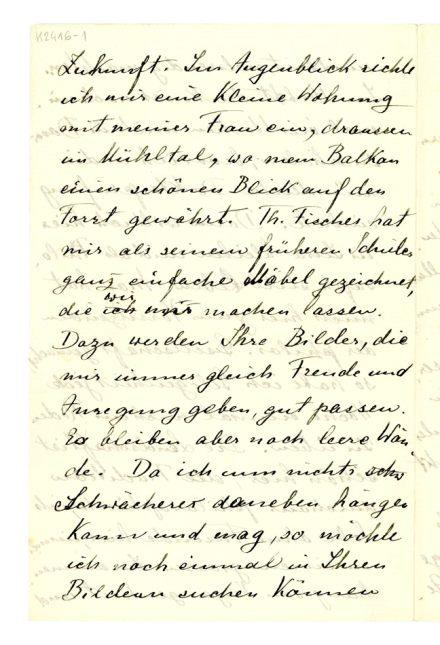 K2416-1
Zukunft. Im Augenblick richte
ich mir eine kleine Wohnung
mit meiner Frau ein, draussen
im Mühltal, wo mein Balkon
einen schönen Blick auf den
Forst gewährt. Th. Fischer hat
mir als seinem früheren Schüler
ganz einfache Möbel gezeichnet,
die wir machen lassen.
Dazu werden Ihre Bilder, die
mir immer gleich Freude und
Anregung geben, gut passen.
Es bleiben aber noch leere Wän-
de. Da ich nun nichts schw
Schwächeres daneben hängen
kann und mag, so möchte
ich noch einmal in Ihren
Bildern suchen können